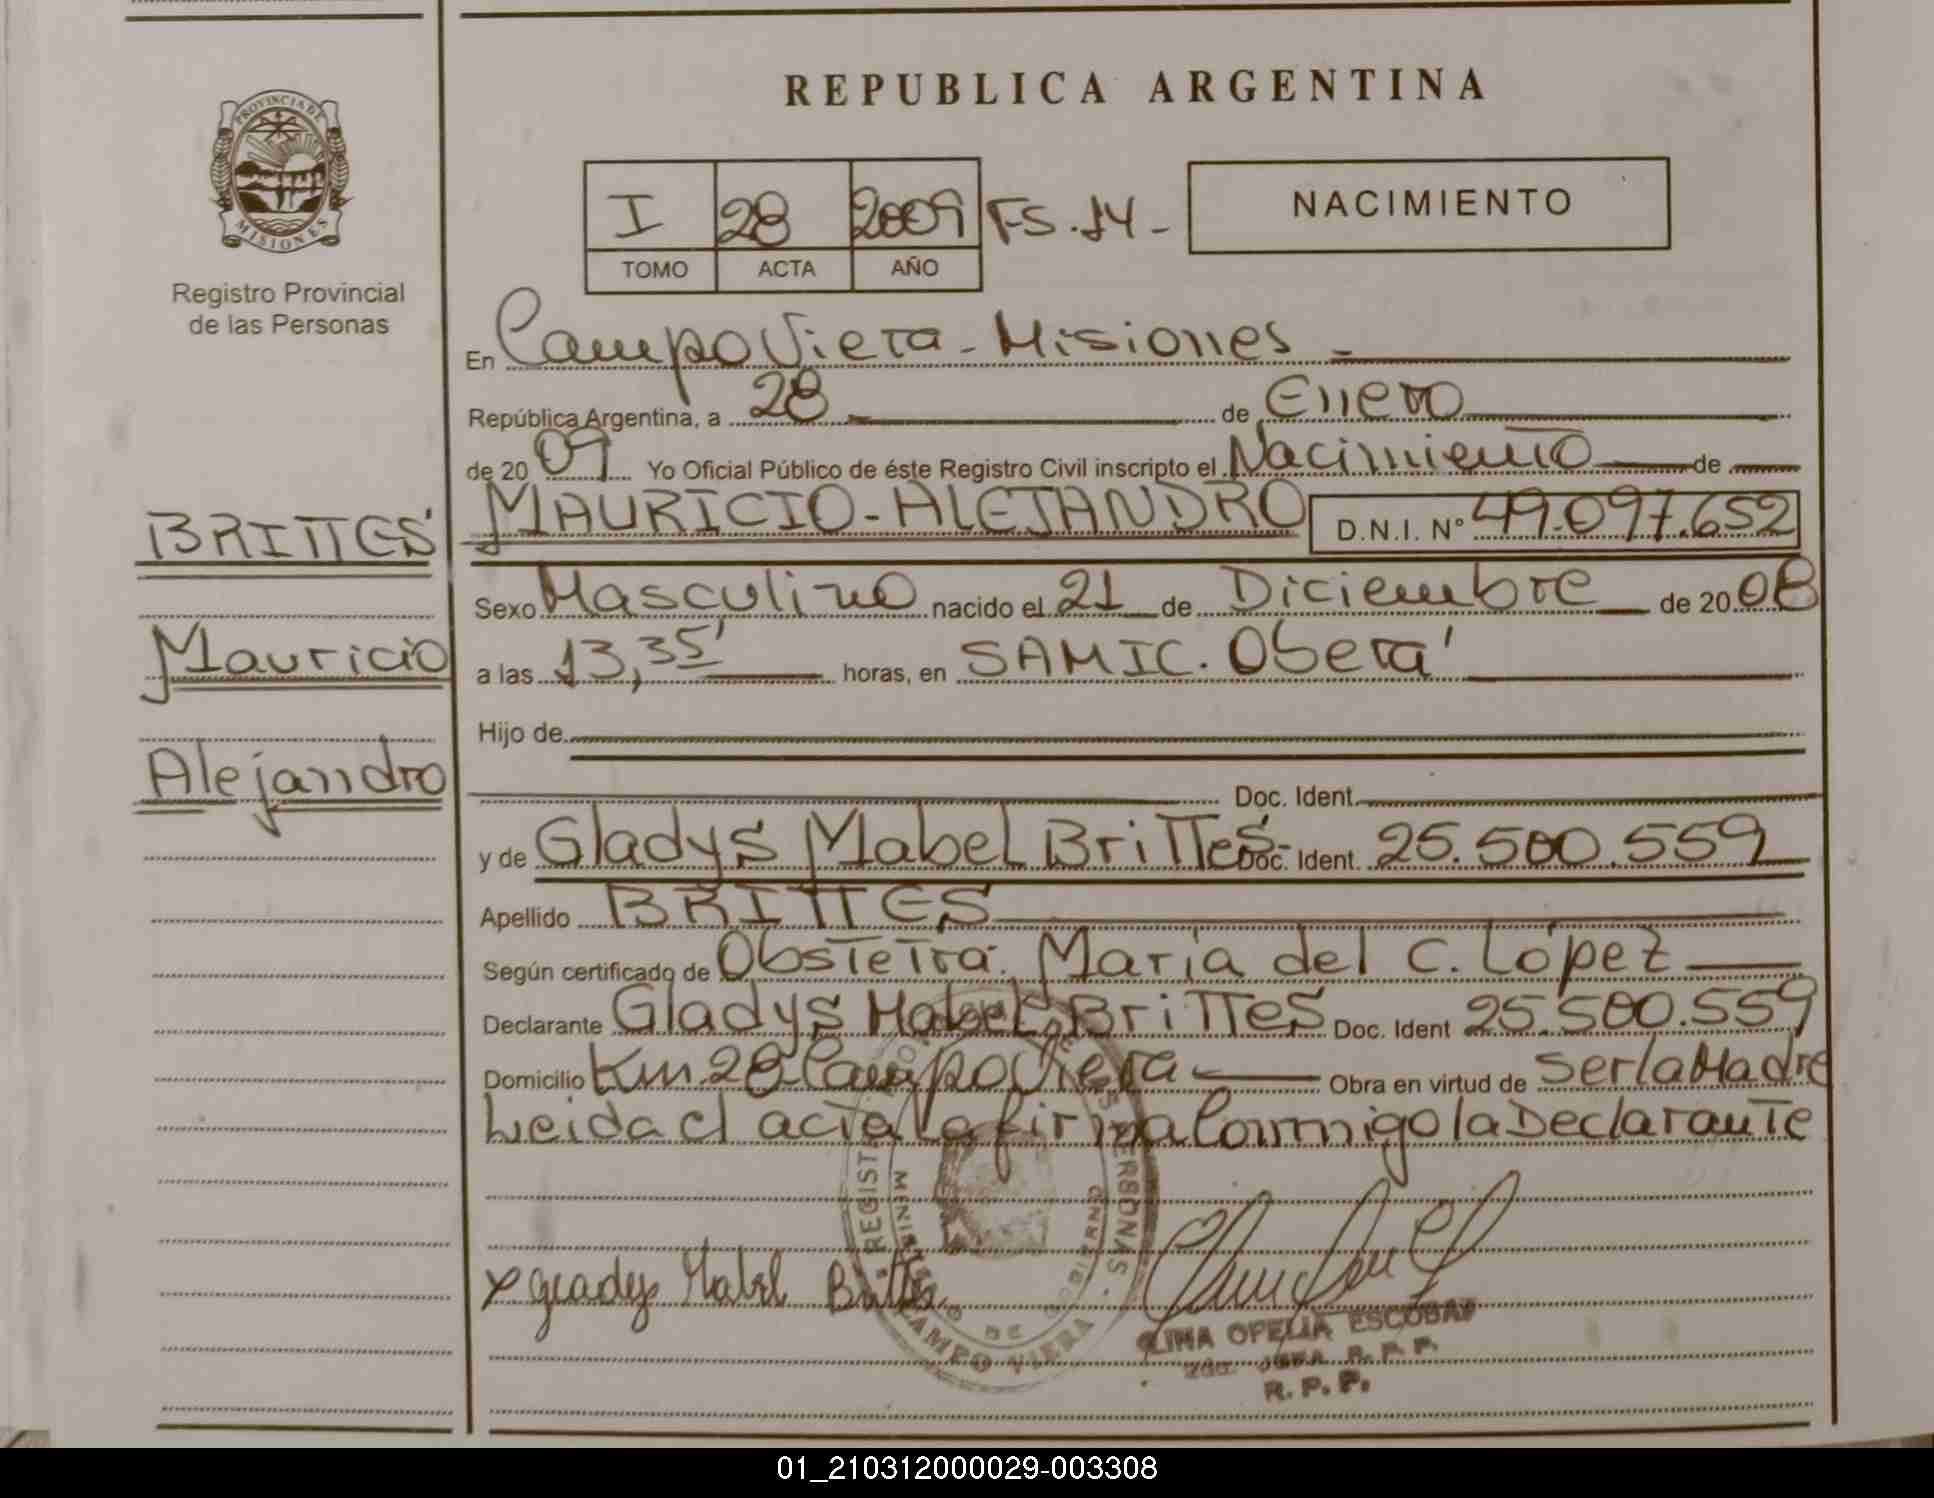 REPUBLICA ARGENTINA
PROVINCIA DE
MISIONES
Registro Provincial
de las Personas
I 28 2009 FS. 14-
TOMO ACTA AÑO
NACIMIENTO
En Campo Viera - Misiones -
República Argentina, a 28 de Enero
de 2009 Yo Oficial Público de éste Registro Civil inscripto el Nacimiento de
BRITTES
MAURICIO-ALEJANDRO D.N.I. Nº 49.097.652
Sexo Masculino nacido el 21 de Diciembre de 2008
Mauricio
a las 13,35' horas, en SAMIC. Oberá
Hijo de
Alejandro
Doc. Ident.
y de Gladys Mabel Brittes Doc. Ident. 25.500.559
Apellido BRITTES
Según certificado de Obstetra. María del C. López
Declarante Gladys Mabel Brittes Doc. Ident 25.500.559
Domicilio Km.28-Campo Viera - Obra en virtud de ser la Madre
Leida el acta la firma Conmigo la Declarante
REGISTRO PERSONAS
MINISTERIO DE GOBIERNO
CAMPO VIERA
x Gladys Mabel Brittes
OFELIA ESCOBAR
2da. JEFA R. P. P.
R. P. P.
01_210312000029-003308